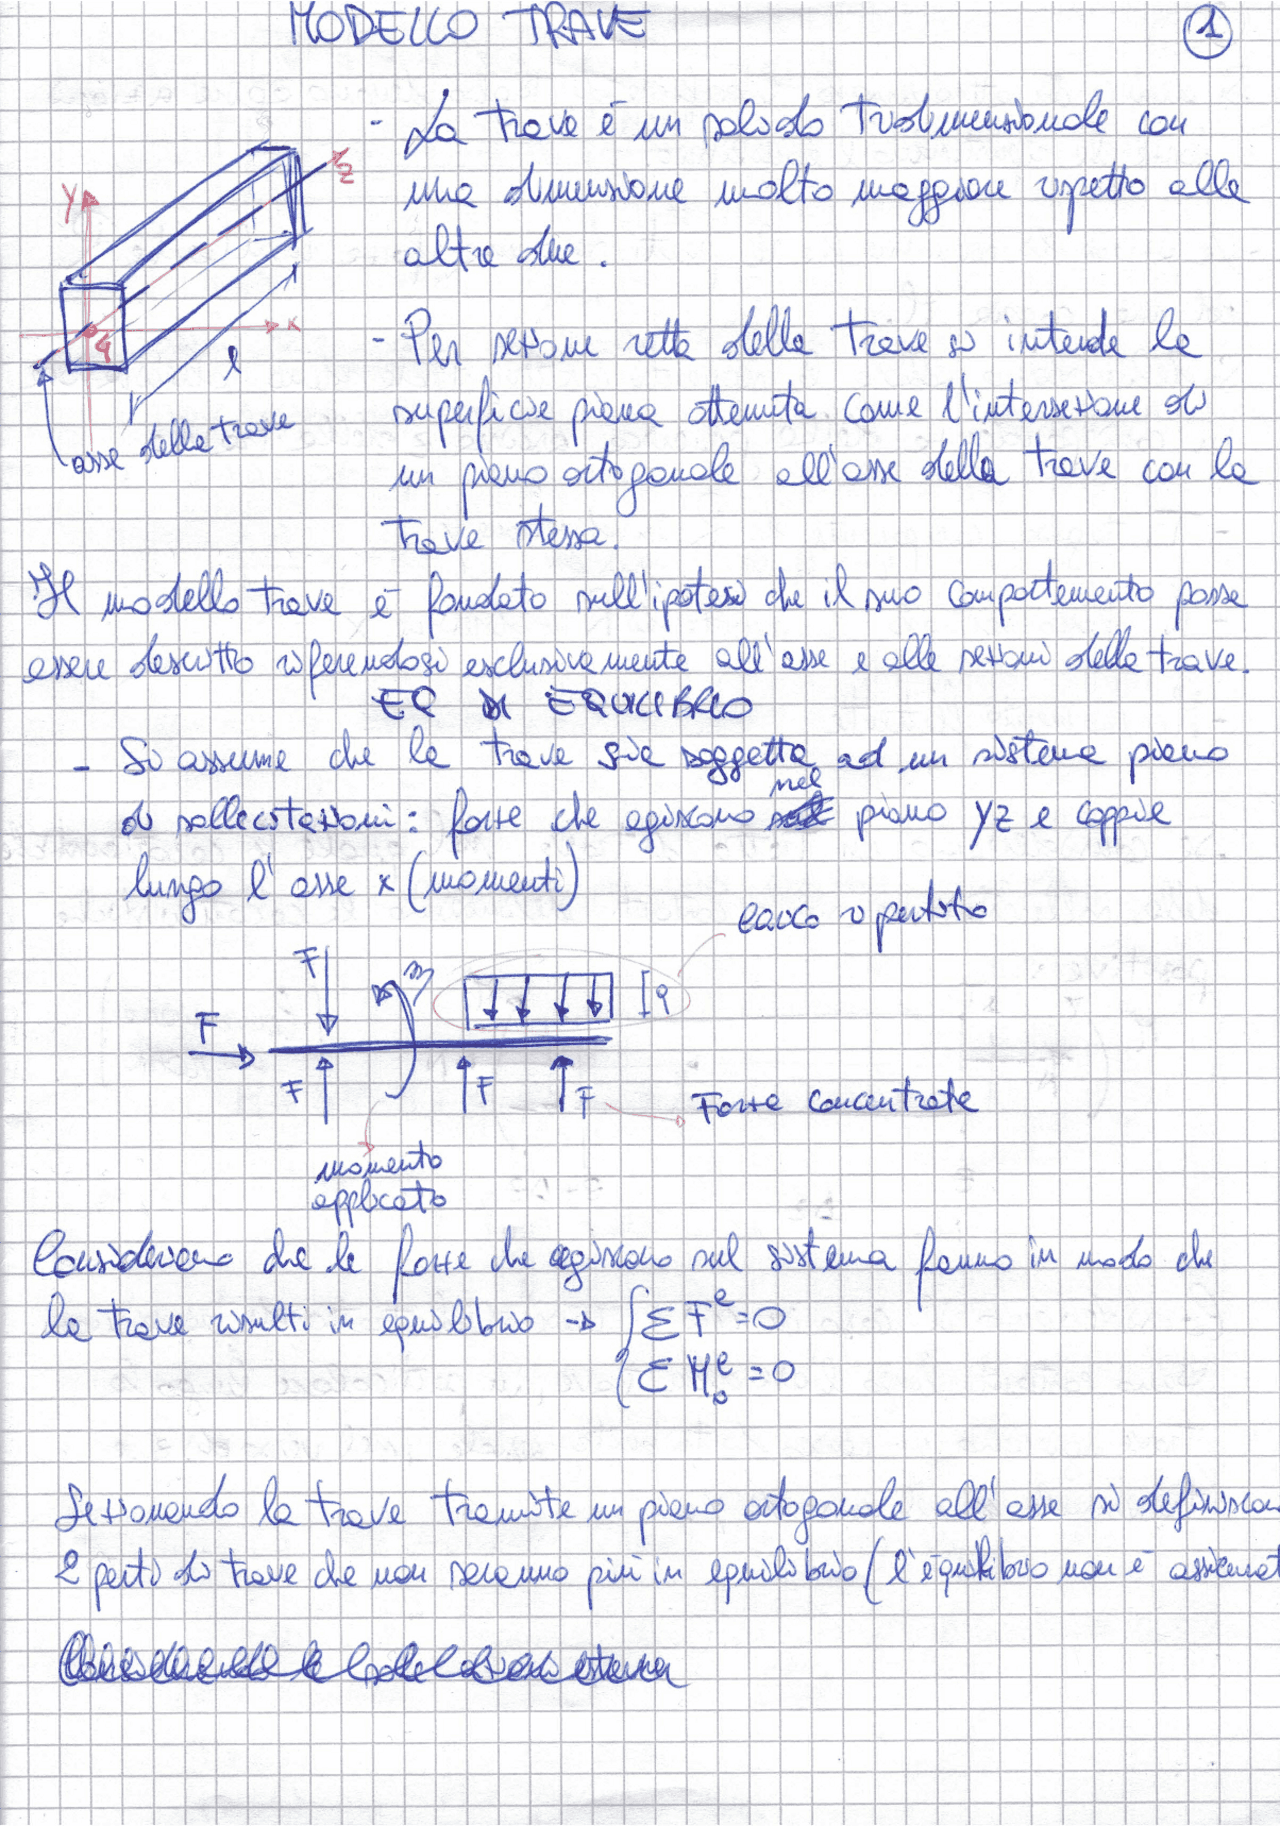 MODELLO TRAVE
1
- La trave è un solido tridimensionale con
una dimensione molto maggiore rispetto alle
altre due.
Y
z
x
G
l
asse della trave
- Per sezione retta della trave si intende la
superficie piana ottenuta come l'intersezione di
un piano ortogonale all'asse della trave con la
trave stessa.
Il modello trave è fondato sull'ipotesi che il suo comportamento possa
essere descritto riferendosi esclusivamente all'asse e alle sezioni della trave.
EQ DI EQUILIBRIO
- Si assume che la trave sia soggetta ad un sistema piano
di sollecitazioni: forze che agiscono nel piano YZ e coppie
lungo l'asse x (momenti)
carico ripartito
F
m
q
F
F
F
F
Forze concentrate
momento
applicato
Consideriamo che le forze che agiscono sul sistema fanno in modo che
la trave risulti in equilibrio → { Σ F^e = 0
Σ M_o^e = 0
Sezionando la trave tramite un piano ortogonale all'asse si definiscon
2 parti di trave che non saranno più in equilibrio (l'equilibrio non è assicurat